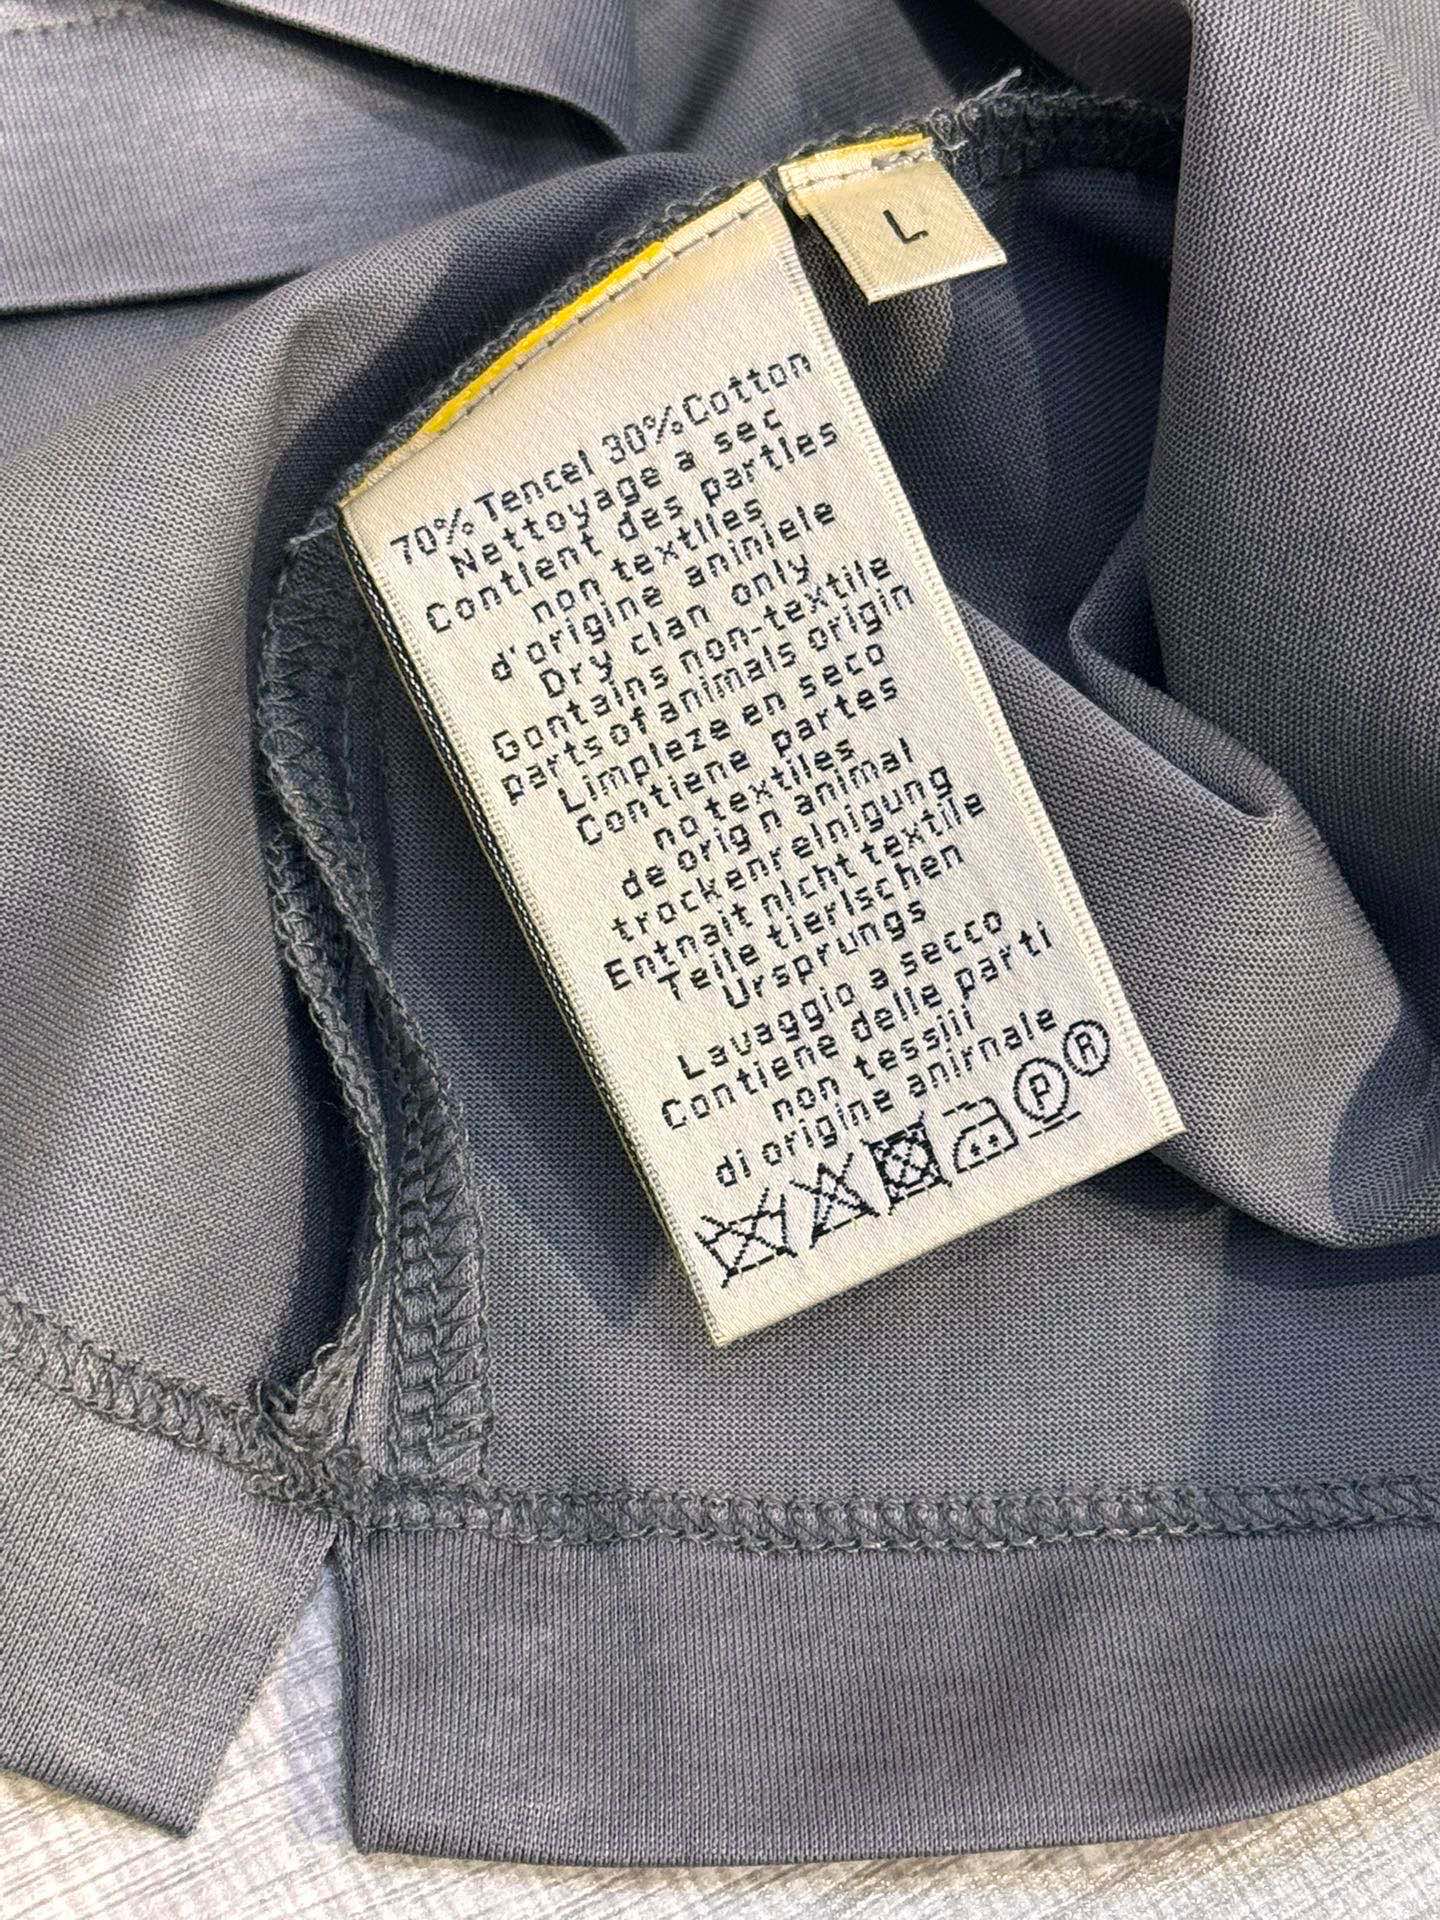 L
70% Tencel 30% Cotton
Nettoyage a sec
Contlent des partles
non textlles
d'origine aniniele
Dry clan only
Gontains non-textile
parts of animals origin
Limpleze en seco
Contiene partes
no textiles
de orig n animal
trockenrelnigung
Entnait nlcht textile
Teile tierlschen
Ursprungs
Lavaggio a secco
Contiene delle parti
non tessiii
di origine anirnale
P R